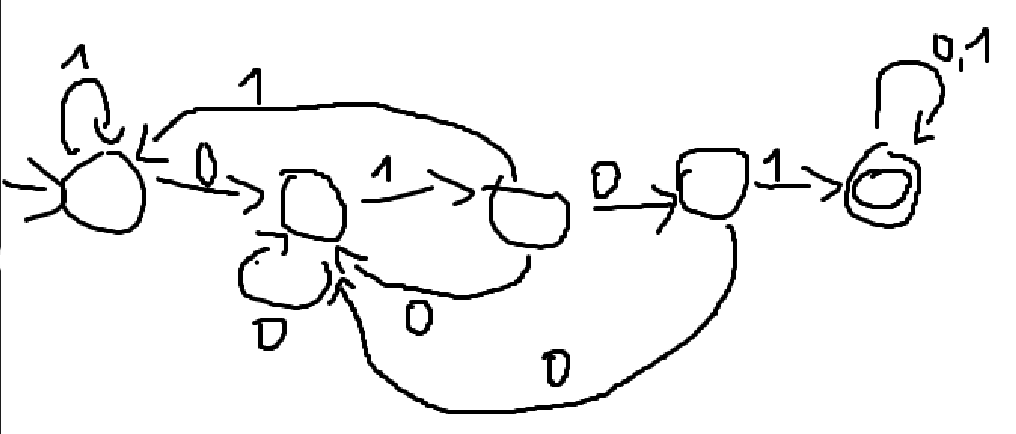 1
0,1
1
0
1
0
1
0
0
0